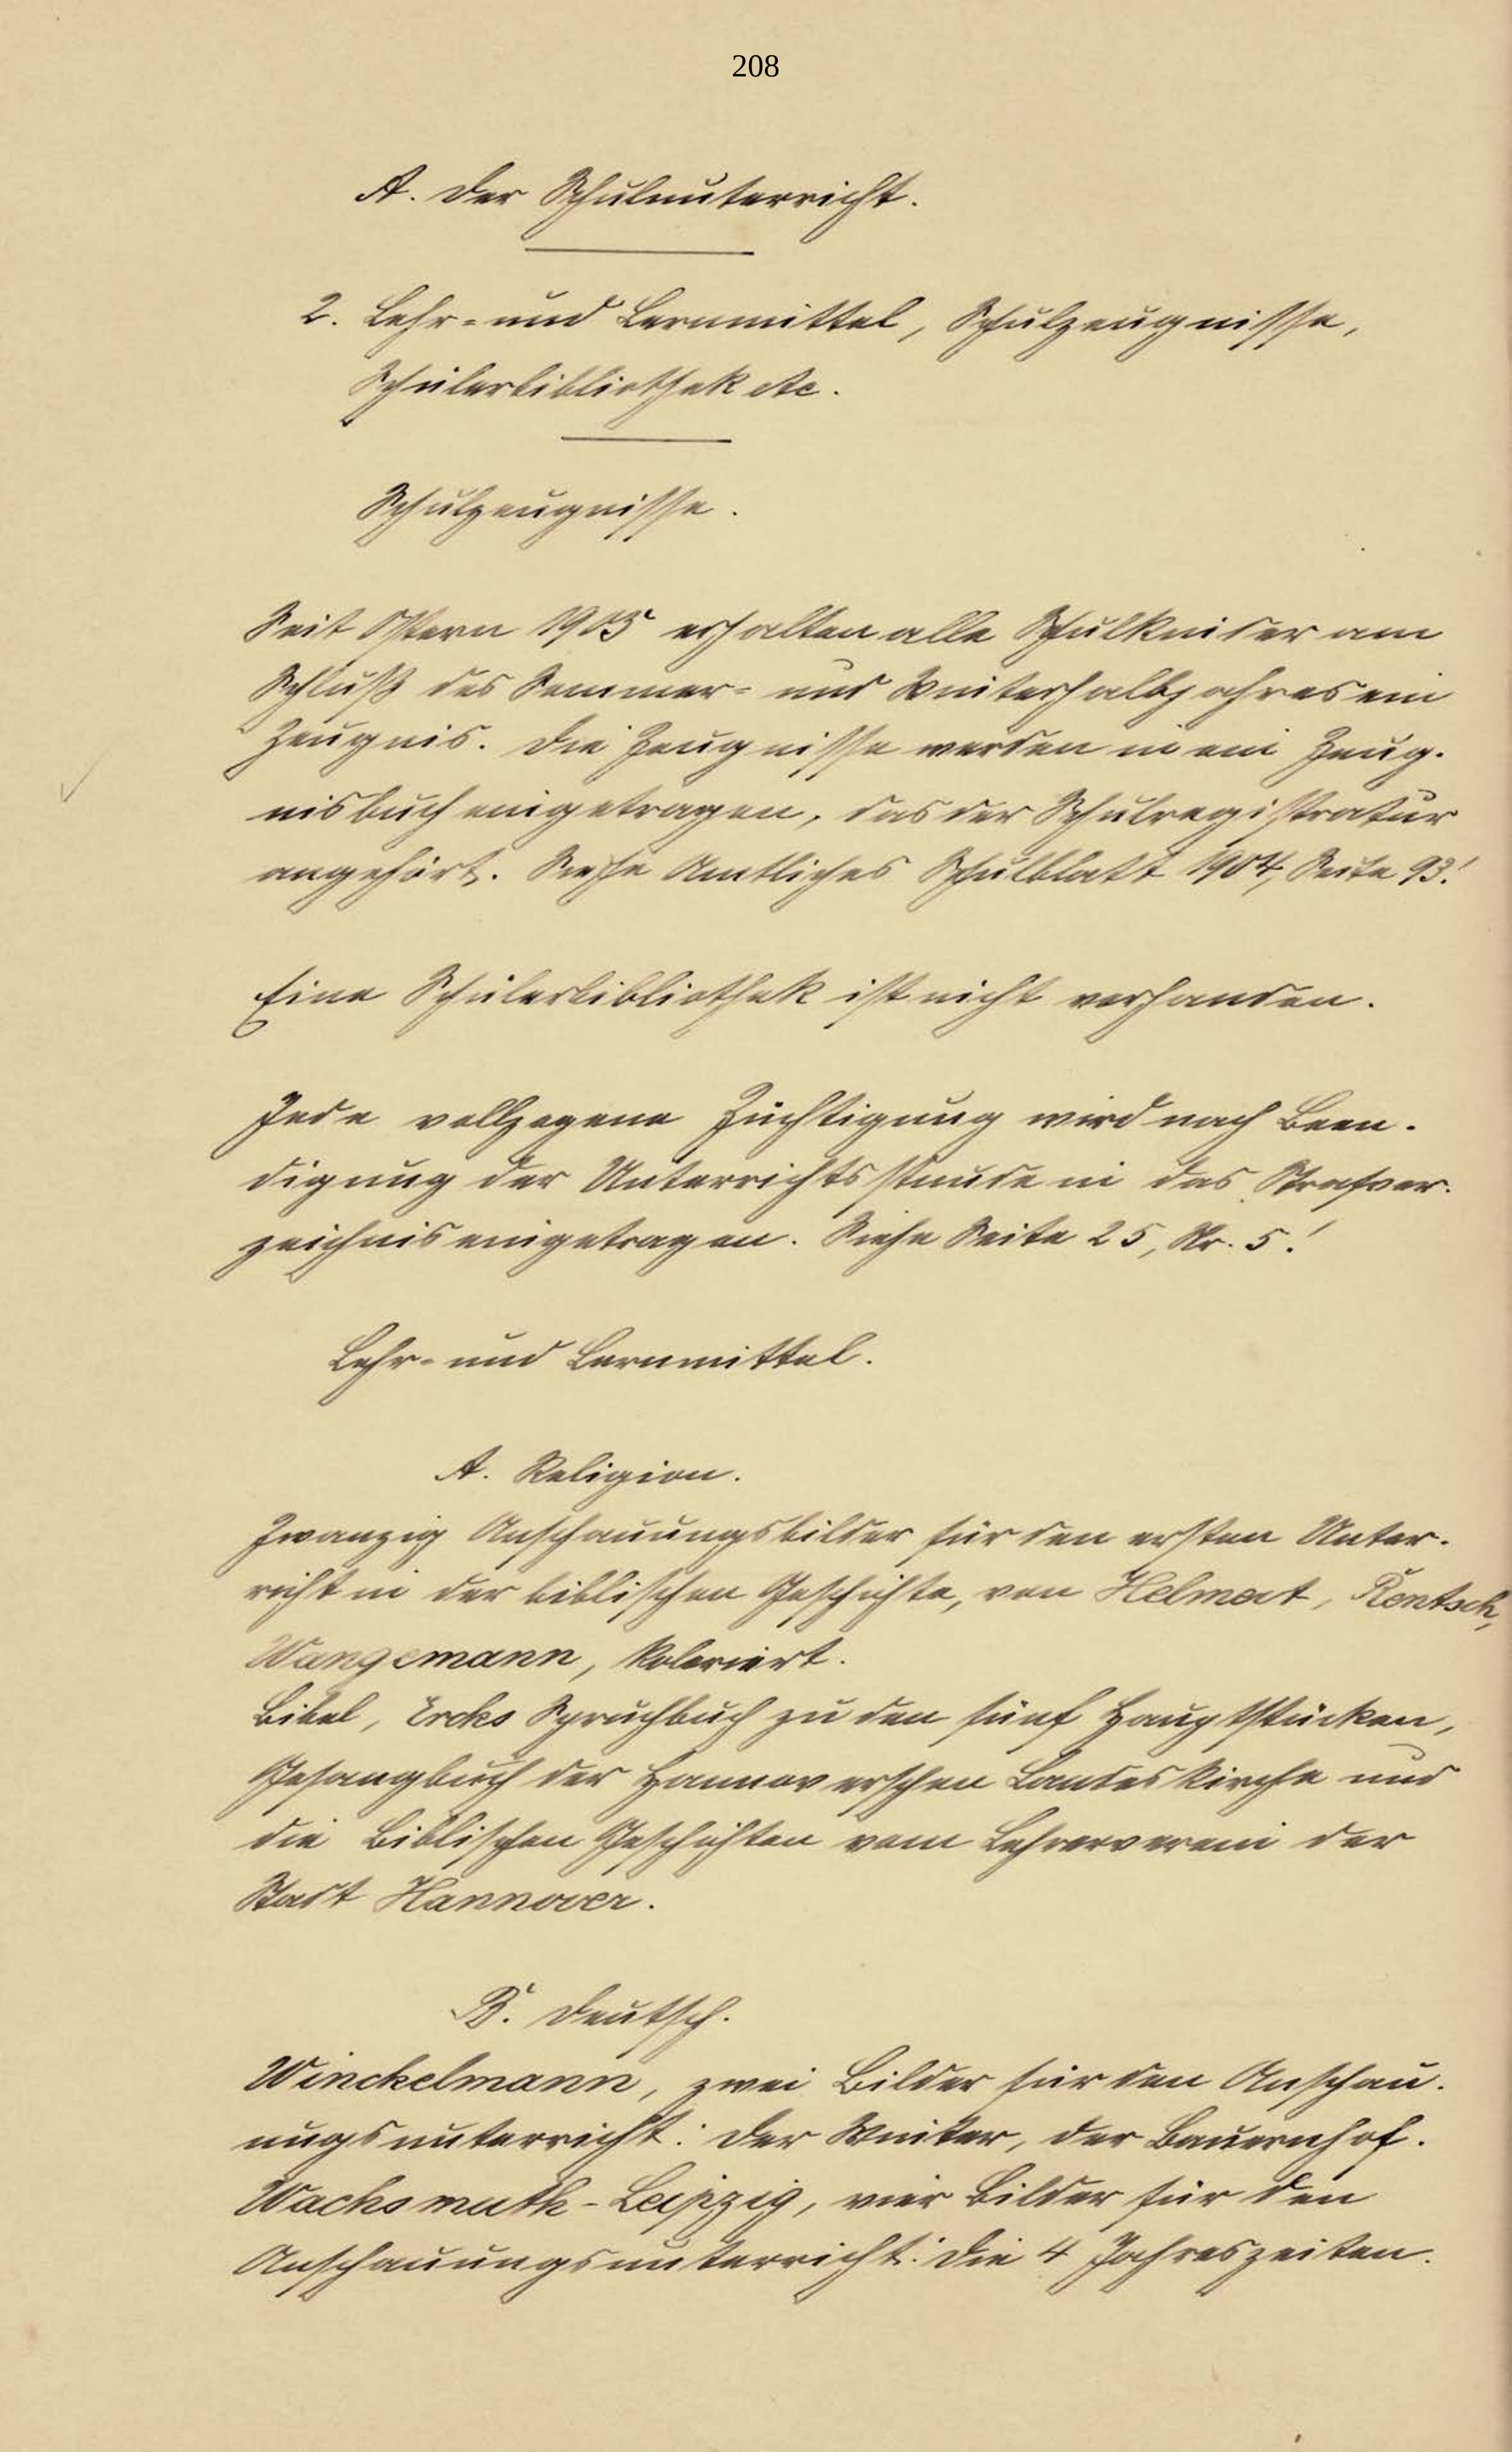 208
A. Der Schulunterricht.
2. Lehr- und Lernmittel, Schulzeugnisse,
Schülerbibliothek etc.
Schulzeugnisse.
Seit Ostern 1905 erhalten alle Schulkinder am
Schluß des Sommer- und Winterhalbjahres ein
Zeugnis. Die Zeugnisse werden in ein Zeug-
nisbuch eingetragen, das der Schulregistratur
angehört. Siehe Amtliches Schulblatt 1904, Seite 93!
Eine Schülerbibliothek ist nicht vorhanden.
Jede vollzogene Züchtigung wird nach Been-
digung der Unterrichtsstunde in das Strafver-
zeichnis eingetragen. Siehe Seite 25, Nr. 5!
Lehr- und Lernmittel.
A. Religion.
Zwanzig Anschauungsbilder für den ersten Unter-
richt in der biblischen Geschichte, von Helmert, Rentsch,
Wangemann, koloriert.
Bibel, Ercks Spruchbuch zu den fünf Hauptstücken,
Gesangbuch der Hannoverschen Landeskirche und
die Biblischen Geschichten vom Lehrerverein der
Stadt Hannover.
B. Deutsch.
Winckelmann, zwei Bilder für den Anschau-
ungsunterricht: Der Winter, der Bauernhof.
Wachsmuth-Leipzig, vier Bilder für den
Anschauungsunterricht: Die 4 Jahreszeiten.